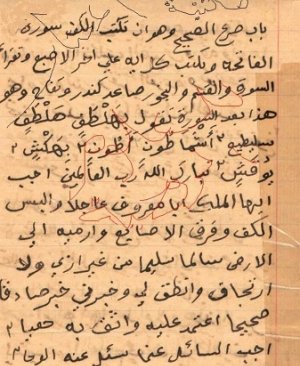 باب صرع الصحيح وهو ان تكتب الكف سورة
الفاتحة وتكتب كل ايه علي اخر الاصبع وتقرا
السورة والقسم والبخور صاعد كندر وتفاح وهو
هذا بعد السورة تقول بهلطف هلطف
سليطيع ٢ اشماطون اطون ٢ بهكش ٢
يوقش ٢ تبارك الله رب العالمين اجب
ايها الملك ابا معروف عاجلا والبس
الكف وفرق الاصابع وارميه الي
الارض سالما سليما من غير ازي ولا
ارتجاف وانطق لي وخبرني خبر صادقا
صحيحا اعتمد عليه واثق به حقيا ٢
اجب السائل عما سئل عنه الوحا ٢